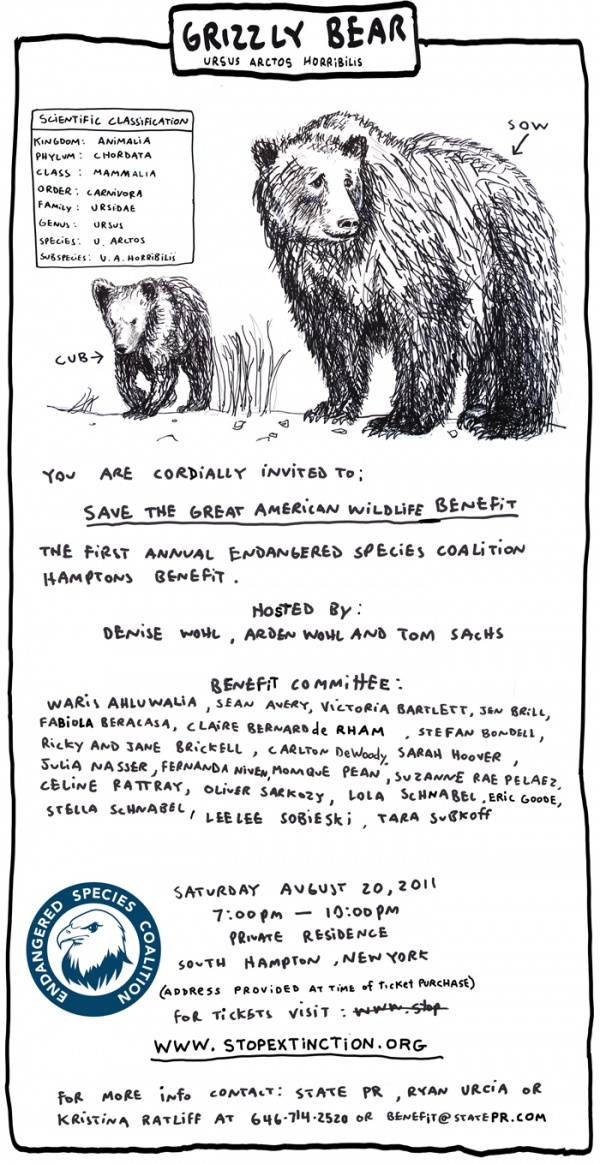 GRIZZLY BEAR
URSUS ARCTOS HORRIBILIS
SCIENTIFIC CLASSIFICATION
KINGDOM: ANIMALIA
PHYLUM: CHORDATA
CLASS: MAMMALIA
ORDER: CARNIVORA
FAMILY: URSIDAE
GENUS: URSUS
SPECIES: U. ARCTOS
SUBSPECIES: U.A. HORRIBILIS
SOW
CUB
YOU ARE CORDIALLY INVITED TO;
SAVE THE GREAT AMERICAN WILDLIFE BENEFIT
THE FIRST ANNUAL ENDANGERED SPECIES COALITION
HAMPTONS BENEFIT.
HOSTED BY:
DENISE WOHL, ARDEN WOHL AND TOM SACHS
BENEFIT COMMITTEE:
WARIS AHLUWALIA, SEAN AVERY, VICTORIA BARTLETT, JEN BRILL,
FABIOLA BERACASA, CLAIRE BERNARD de RHAM, STEFAN BONDELL,
RICKY AND JANE BRICKELL, CARLTON DeWoody, SARAH HOOVER,
JULIA NASSER, FERNANDA NIVEN, MONIQUE PEAN, SUZANNE RAE PELAEZ,
CELINE RATTRAY, OLIVER SARKOZY, LOLA SCHNABEL, ERIC GOODE,
STELLA SCHNABEL, LEELEE SOBIESKI, TARA SUBKOFF
ENDANGERED SPECIES COALITION
SATURDAY AUGUST 20, 2011
7:00pm — 10:00pm
PRIVATE RESIDENCE
SOUTH HAMPTON, NEW YORK
(ADDRESS PROVIDED AT TIME OF TICKET PURCHASE)
FOR TICKETS VISIT: www.stop
WWW.STOPEXTINCTION.ORG
FOR MORE INFO CONTACT: STATE PR, RYAN URCIA OR
KRISTINA RATLIFF AT 646-714-2520 OR BENEFIT@STATEPR.COM